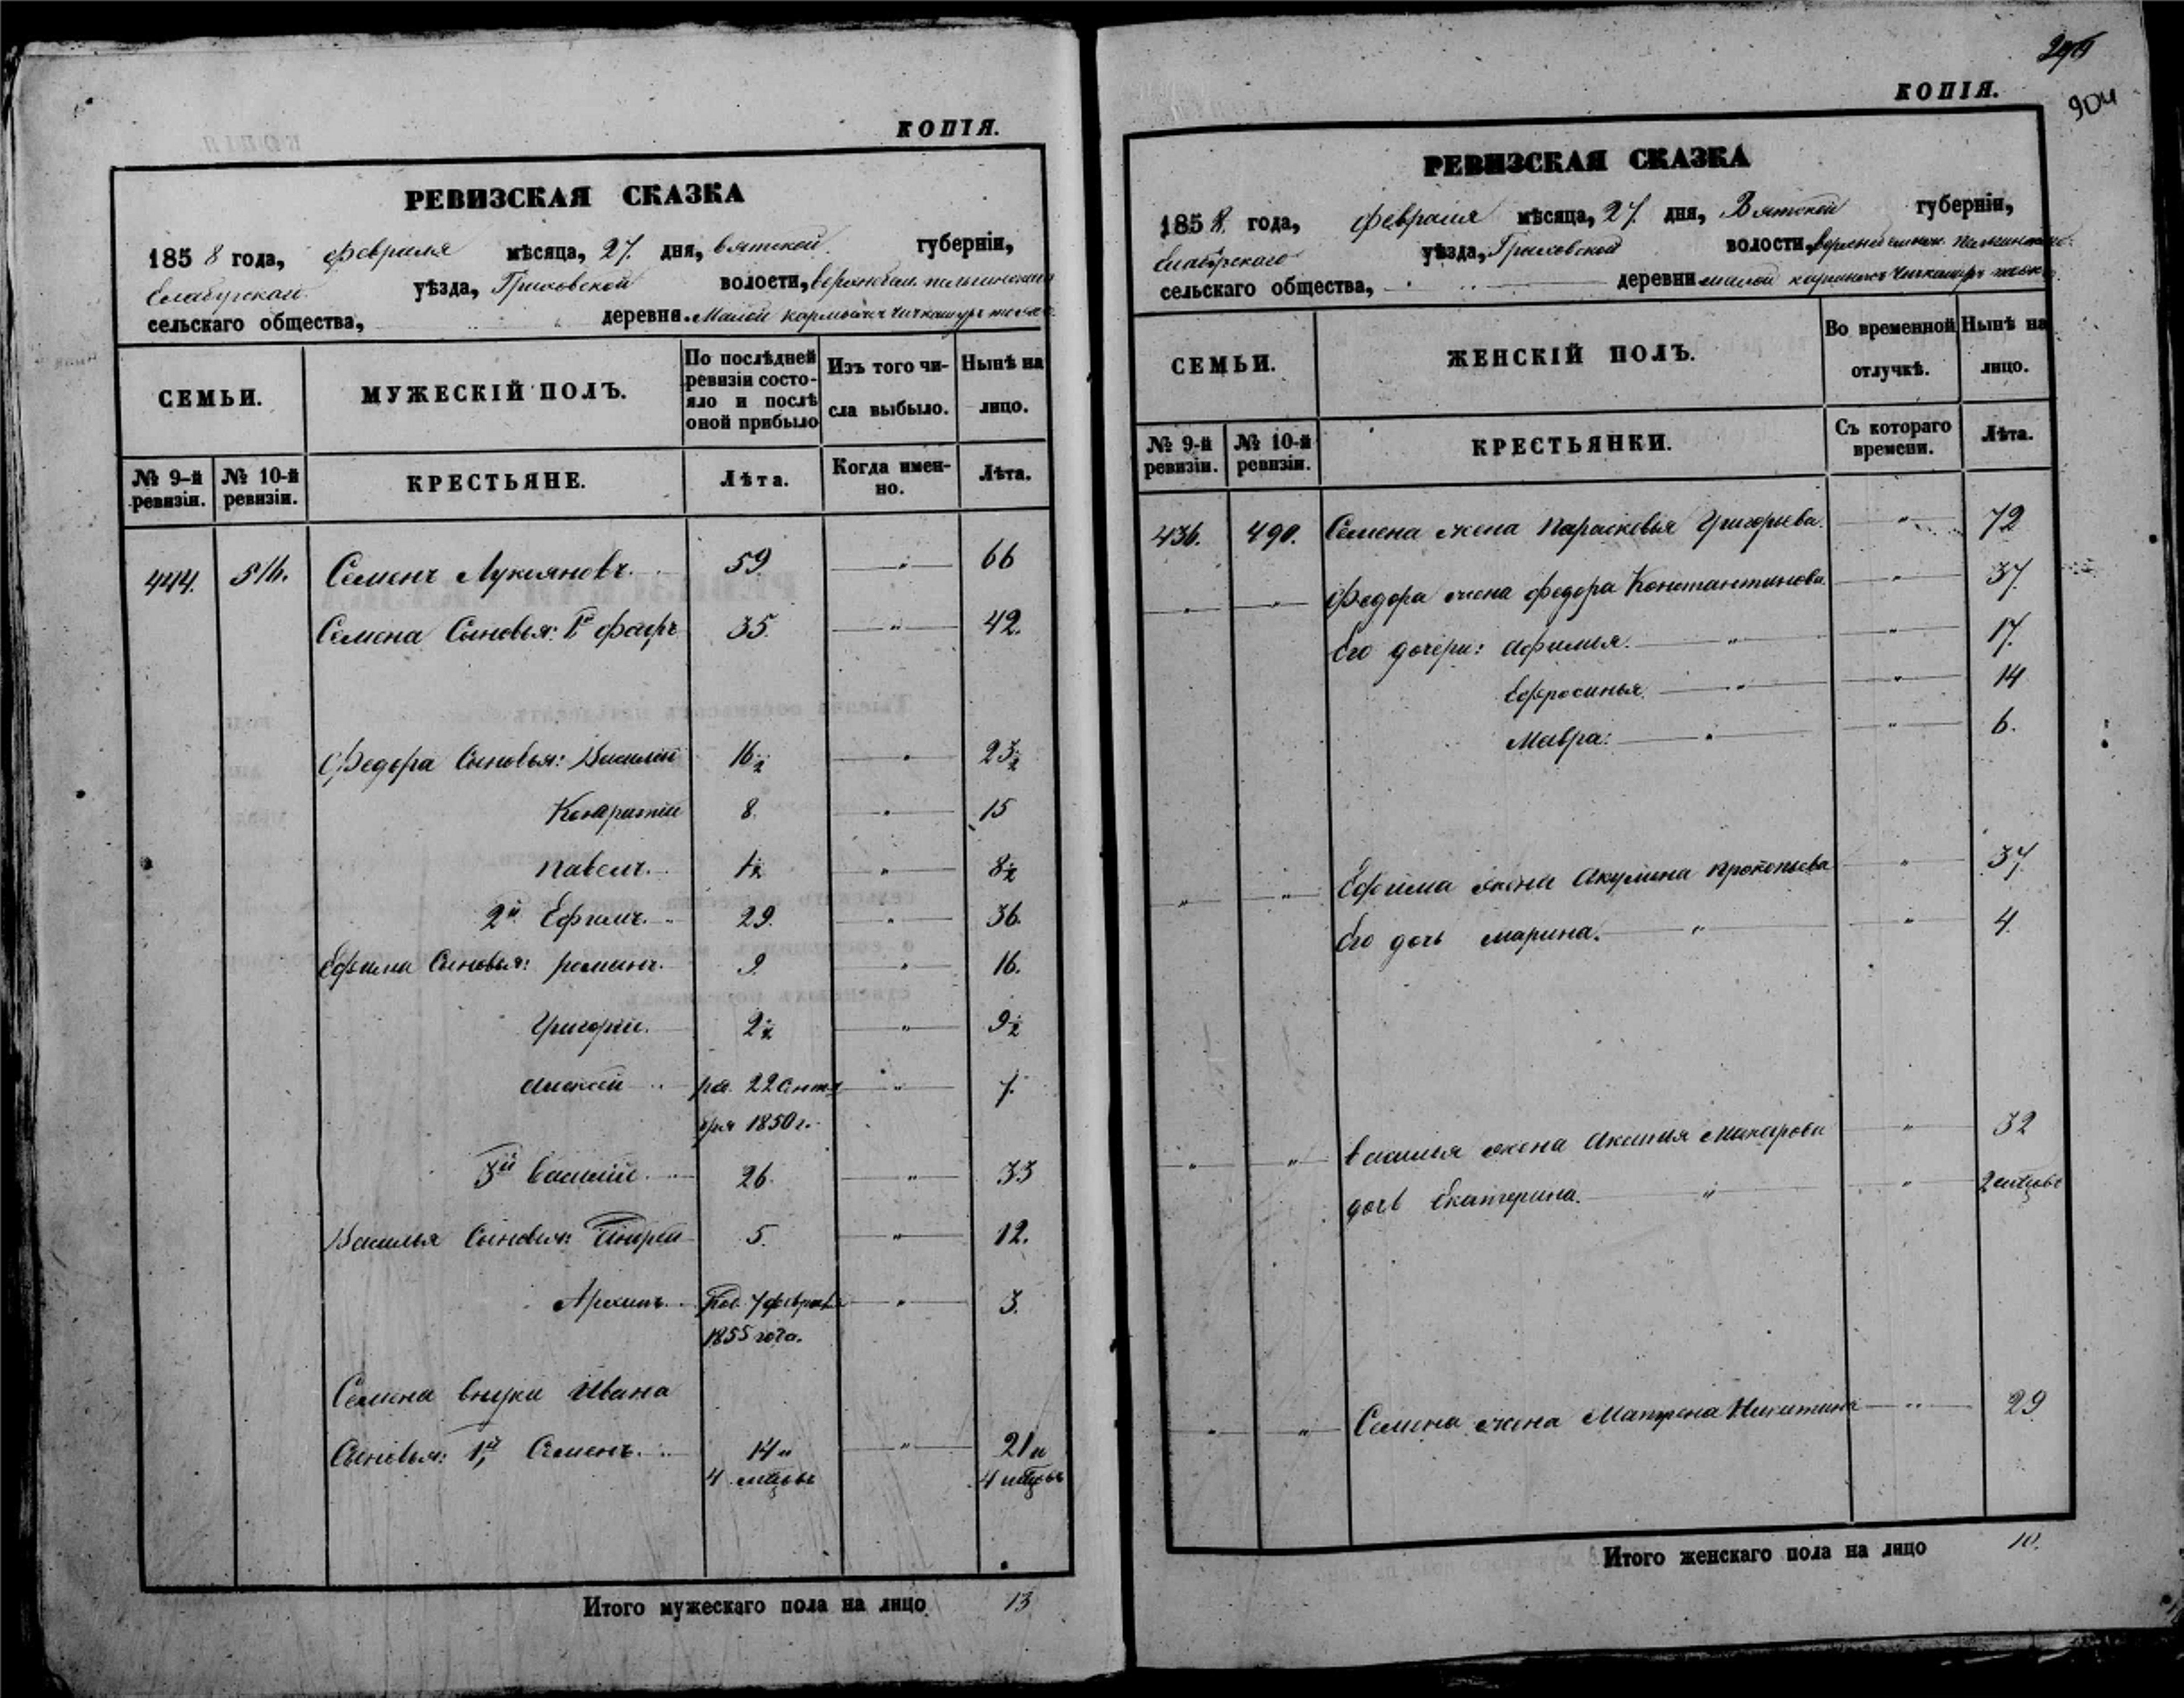 КОПІЯ.
РЕВИЗСКАЯ СКАЗКА
1858 года, февраля мѣсяца, 27. дня, вятской губерніи,
Елабугскаго уѣзда, волости,
сельскаго общества, деревни. Малой
СЕМЬИ.
МУЖЕСКІЙ ПОЛЪ.
По послѣдней ревизіи состояло и послѣ оной прибыло
Изъ того числа выбыло.
Нынѣ на лицо.
№ 9-й ревизіи.
№ 10-й ревизіи.
КРЕСТЬЯНЕ.
Лѣта.
Когда именно.
Лѣта.
444. 516. Семенъ Лукояновъ. 59 " 66
Семена Сыновья: 1й 35. " 42.
Федора Сыновья: Василій 16½ " 23½
8. " 15
Павелъ. 1½ " 8½
2й Ефимъ. 29. " 36.
Ефима Сыновья: романъ. 9 " 16.
Григорій. 2½ " 9½
алексей ра. 22 сентя " 7.
бря 1850 г.
3й василій. 26. " 33
Василья Сыновья: Андрей 5. " 12.
Архипъ. 7 февраля " 3.
1855 года.
Семена внуки Ивана
Сыновья: 1й, Семенъ. 14 и " 21 и
4 мѣцовъ 4 мѣцовъ
Итого мужескаго пола на лицо 13
904
КОПІЯ.
РЕВИЗСКАЯ СКАЗКА
1858. года, февраля мѣсяца, 27. дня, Вятской губерніи,
Елабугскаго уѣзда, волости,
сельскаго общества, деревни малой
СЕМЬИ.
ЖЕНСКІЙ ПОЛЪ.
Во временной отлучкѣ.
Нынѣ на лицо.
№ 9-й ревизіи.
№ 10-й ревизіи.
КРЕСТЬЯНКИ.
Съ котораго времени.
Лѣта.
436. 490. Семена жена Парасковья Григорьева. " 72
" " Федора жена федора Константинова. " 37.
Его дочери: афимья. " " 17.
Ефросинья. " " 14
Мавра: " " 6.
" " Ефима жена Акулина прокопьева "
Его дочь марина. " " 4.
" " василья жена Аксинія макарова " 32
дочь Екатерина. " " 2 мѣцовъ
" " Семена жена Матрена Никитина " 29
Итого женскаго пола на лицо 10.